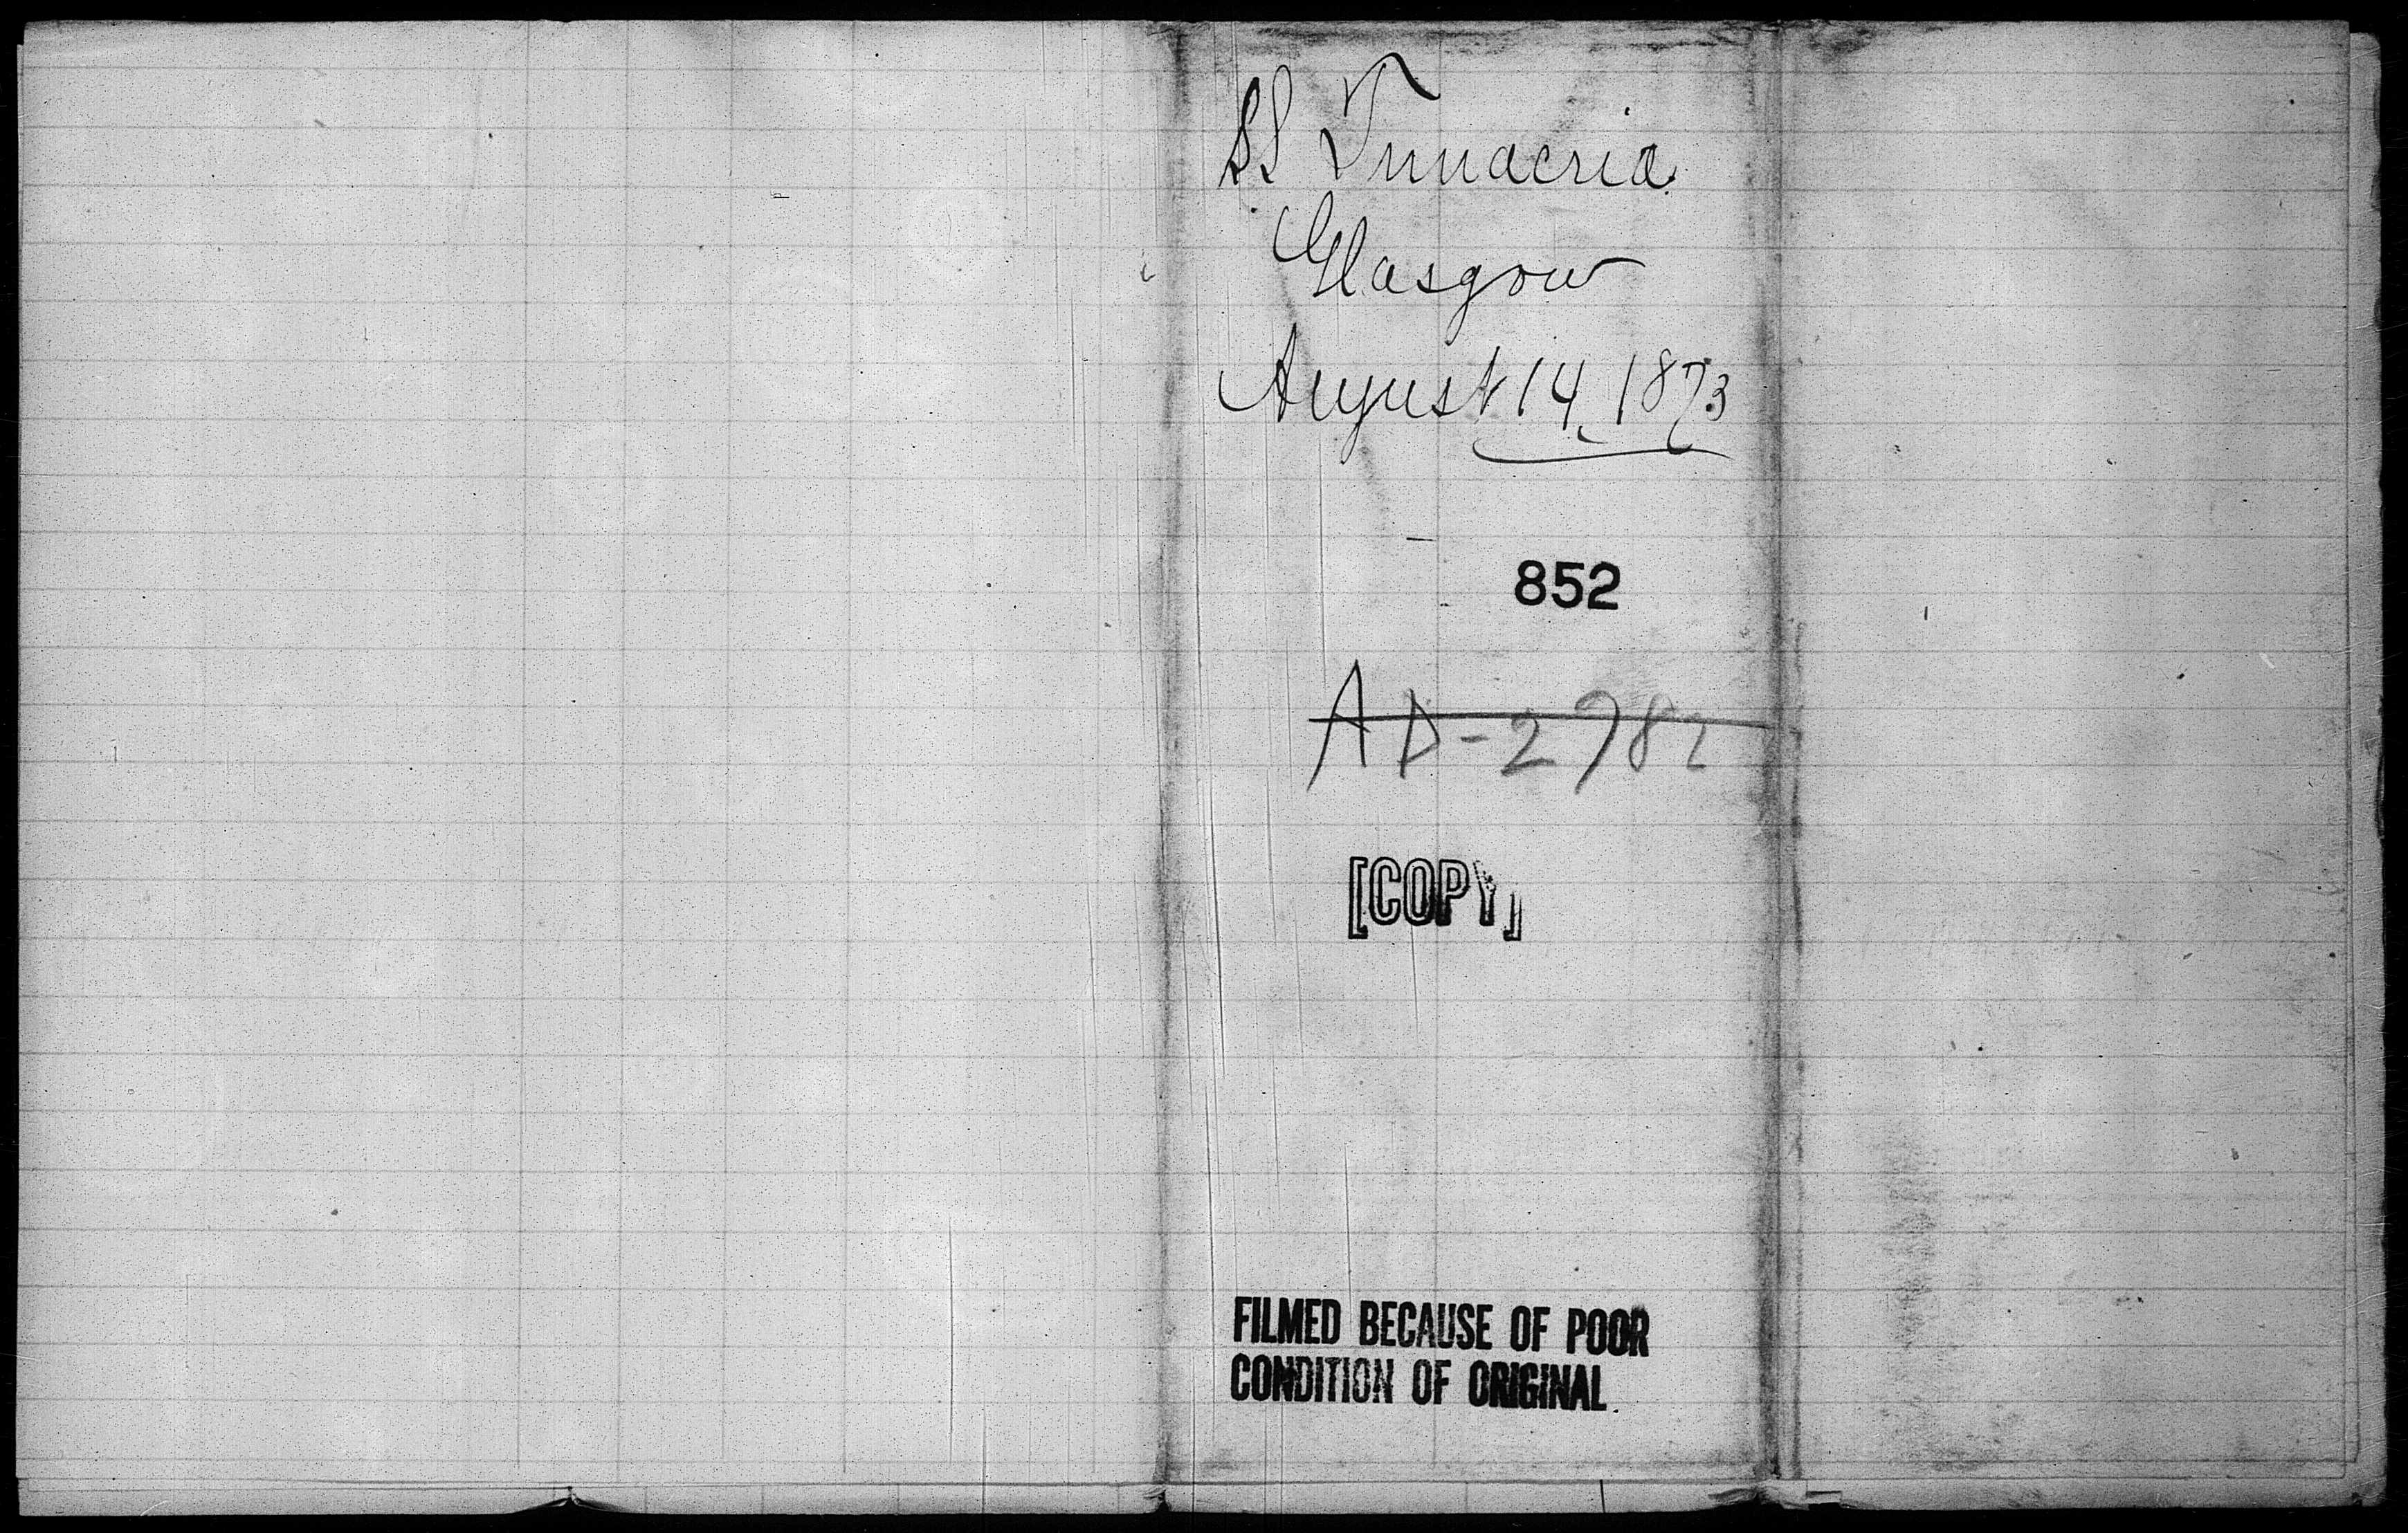 SS Trinacria
Glasgow
August 14, 1873
852
AD-2782
[COPY]
FILMED BECAUSE OF POOR
CONDITION OF ORIGINAL